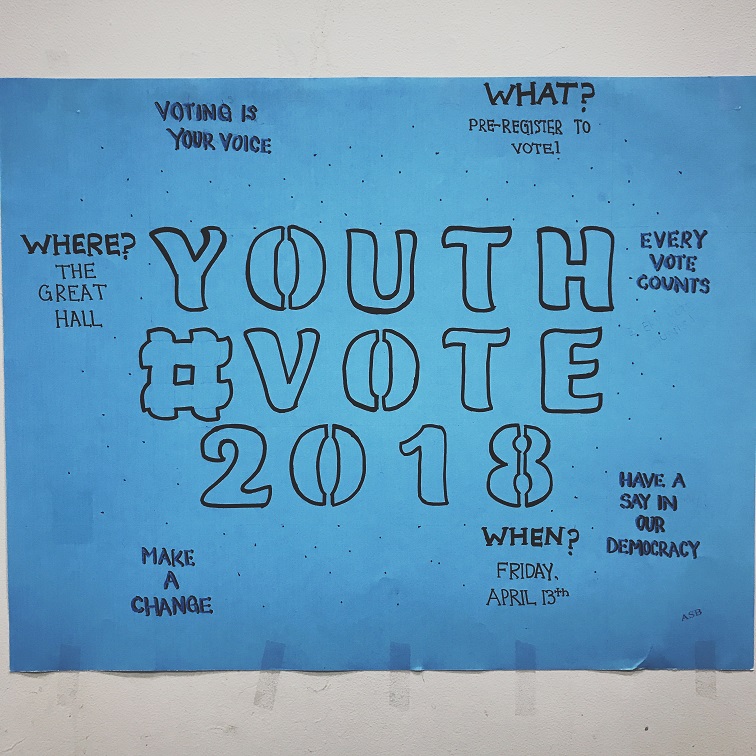 VOTING IS
YOUR VOICE
WHAT?
PRE-REGISTER TO
VOTE!
WHERE?
THE
GREAT
HALL
YOUTH
#VOTE
2018
EVERY
VOTE
COUNTS
HAVE A
SAY IN
OUR
DEMOCRACY
MAKE
A
CHANGE
WHEN?
FRIDAY,
APRIL 13th
ASB